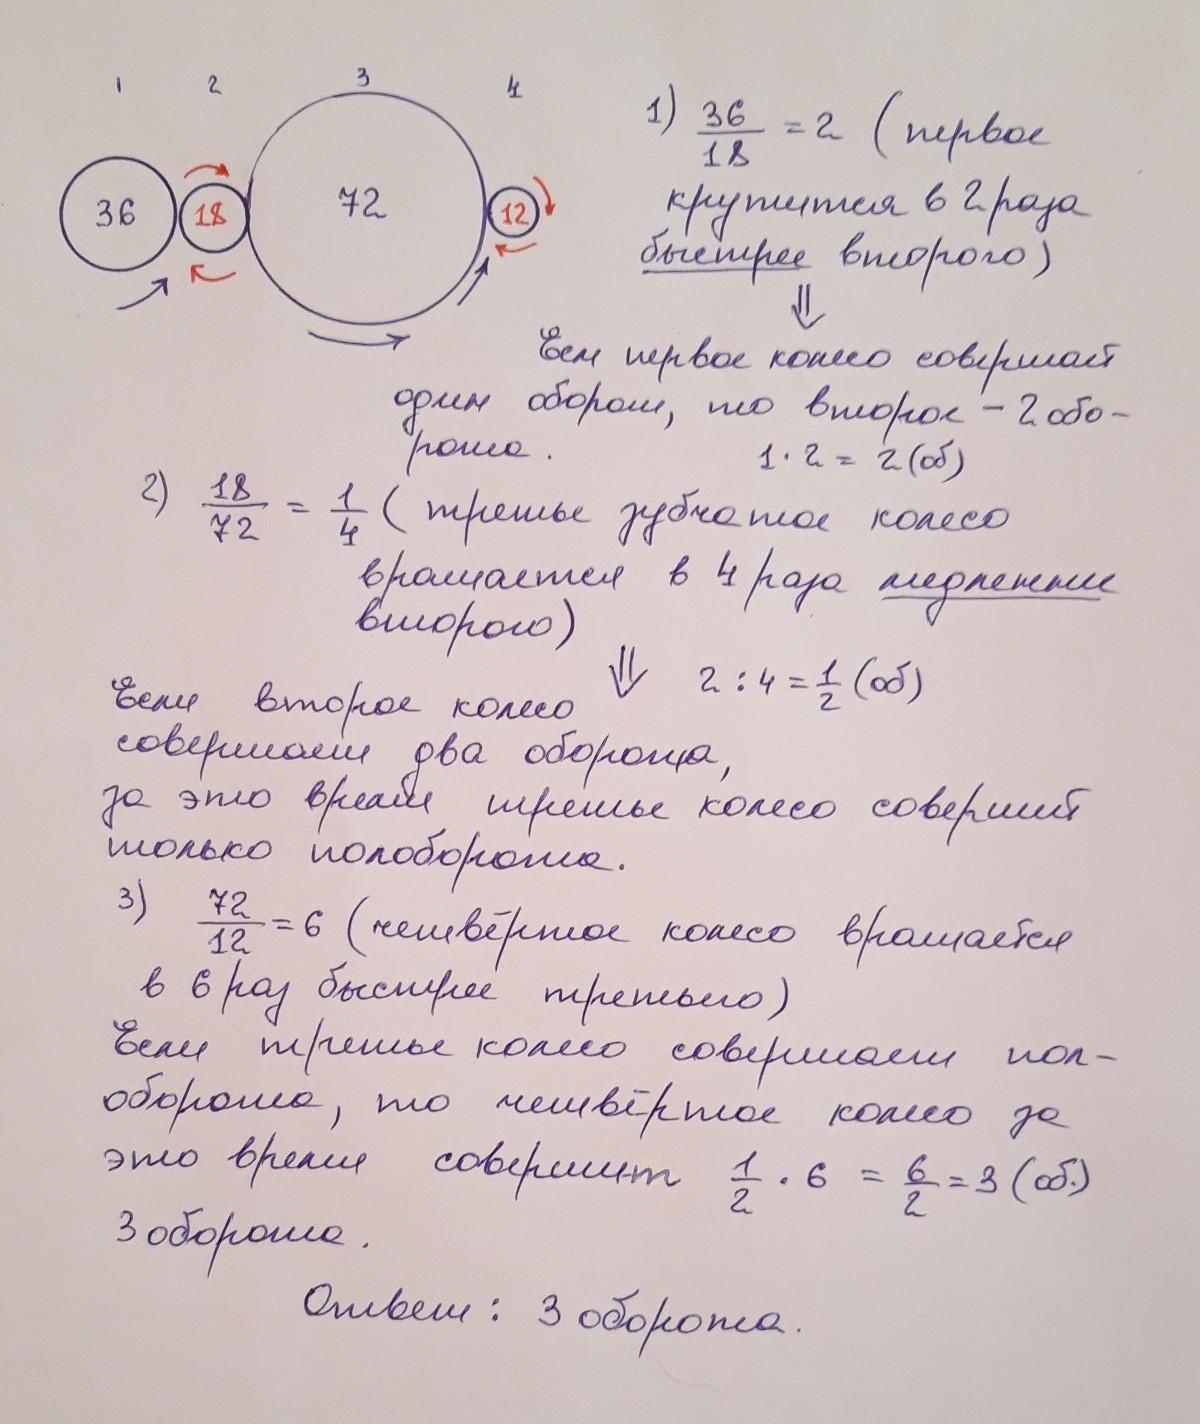 1 2 3 4
36 18 72 12
1) 36/18 = 2 (первое
крутится в 2 раза
быстрее второго)
⇓
Если первое колесо совершает
один оборот, то второе – 2 обо-
рота. 1 · 2 = 2 (об)
2) 18/72 = 1/4 (третье зубчатое колесо
вращается в 4 раза медленнее
второго)
⇓ 2 : 4 = 1/2 (об)
Если второе колесо
совершает два оборота,
за это время третье колесо совершит
только полоборота.
3) 72/12 = 6 (четвёртое колесо вращается
в 6 раз быстрее третьего)
Если третье колесо совершает пол-
оборота, то четвёртое колесо за
это время совершит 1/2 · 6 = 6/2 = 3 (об.)
3 оборота.
Ответ: 3 оборота.